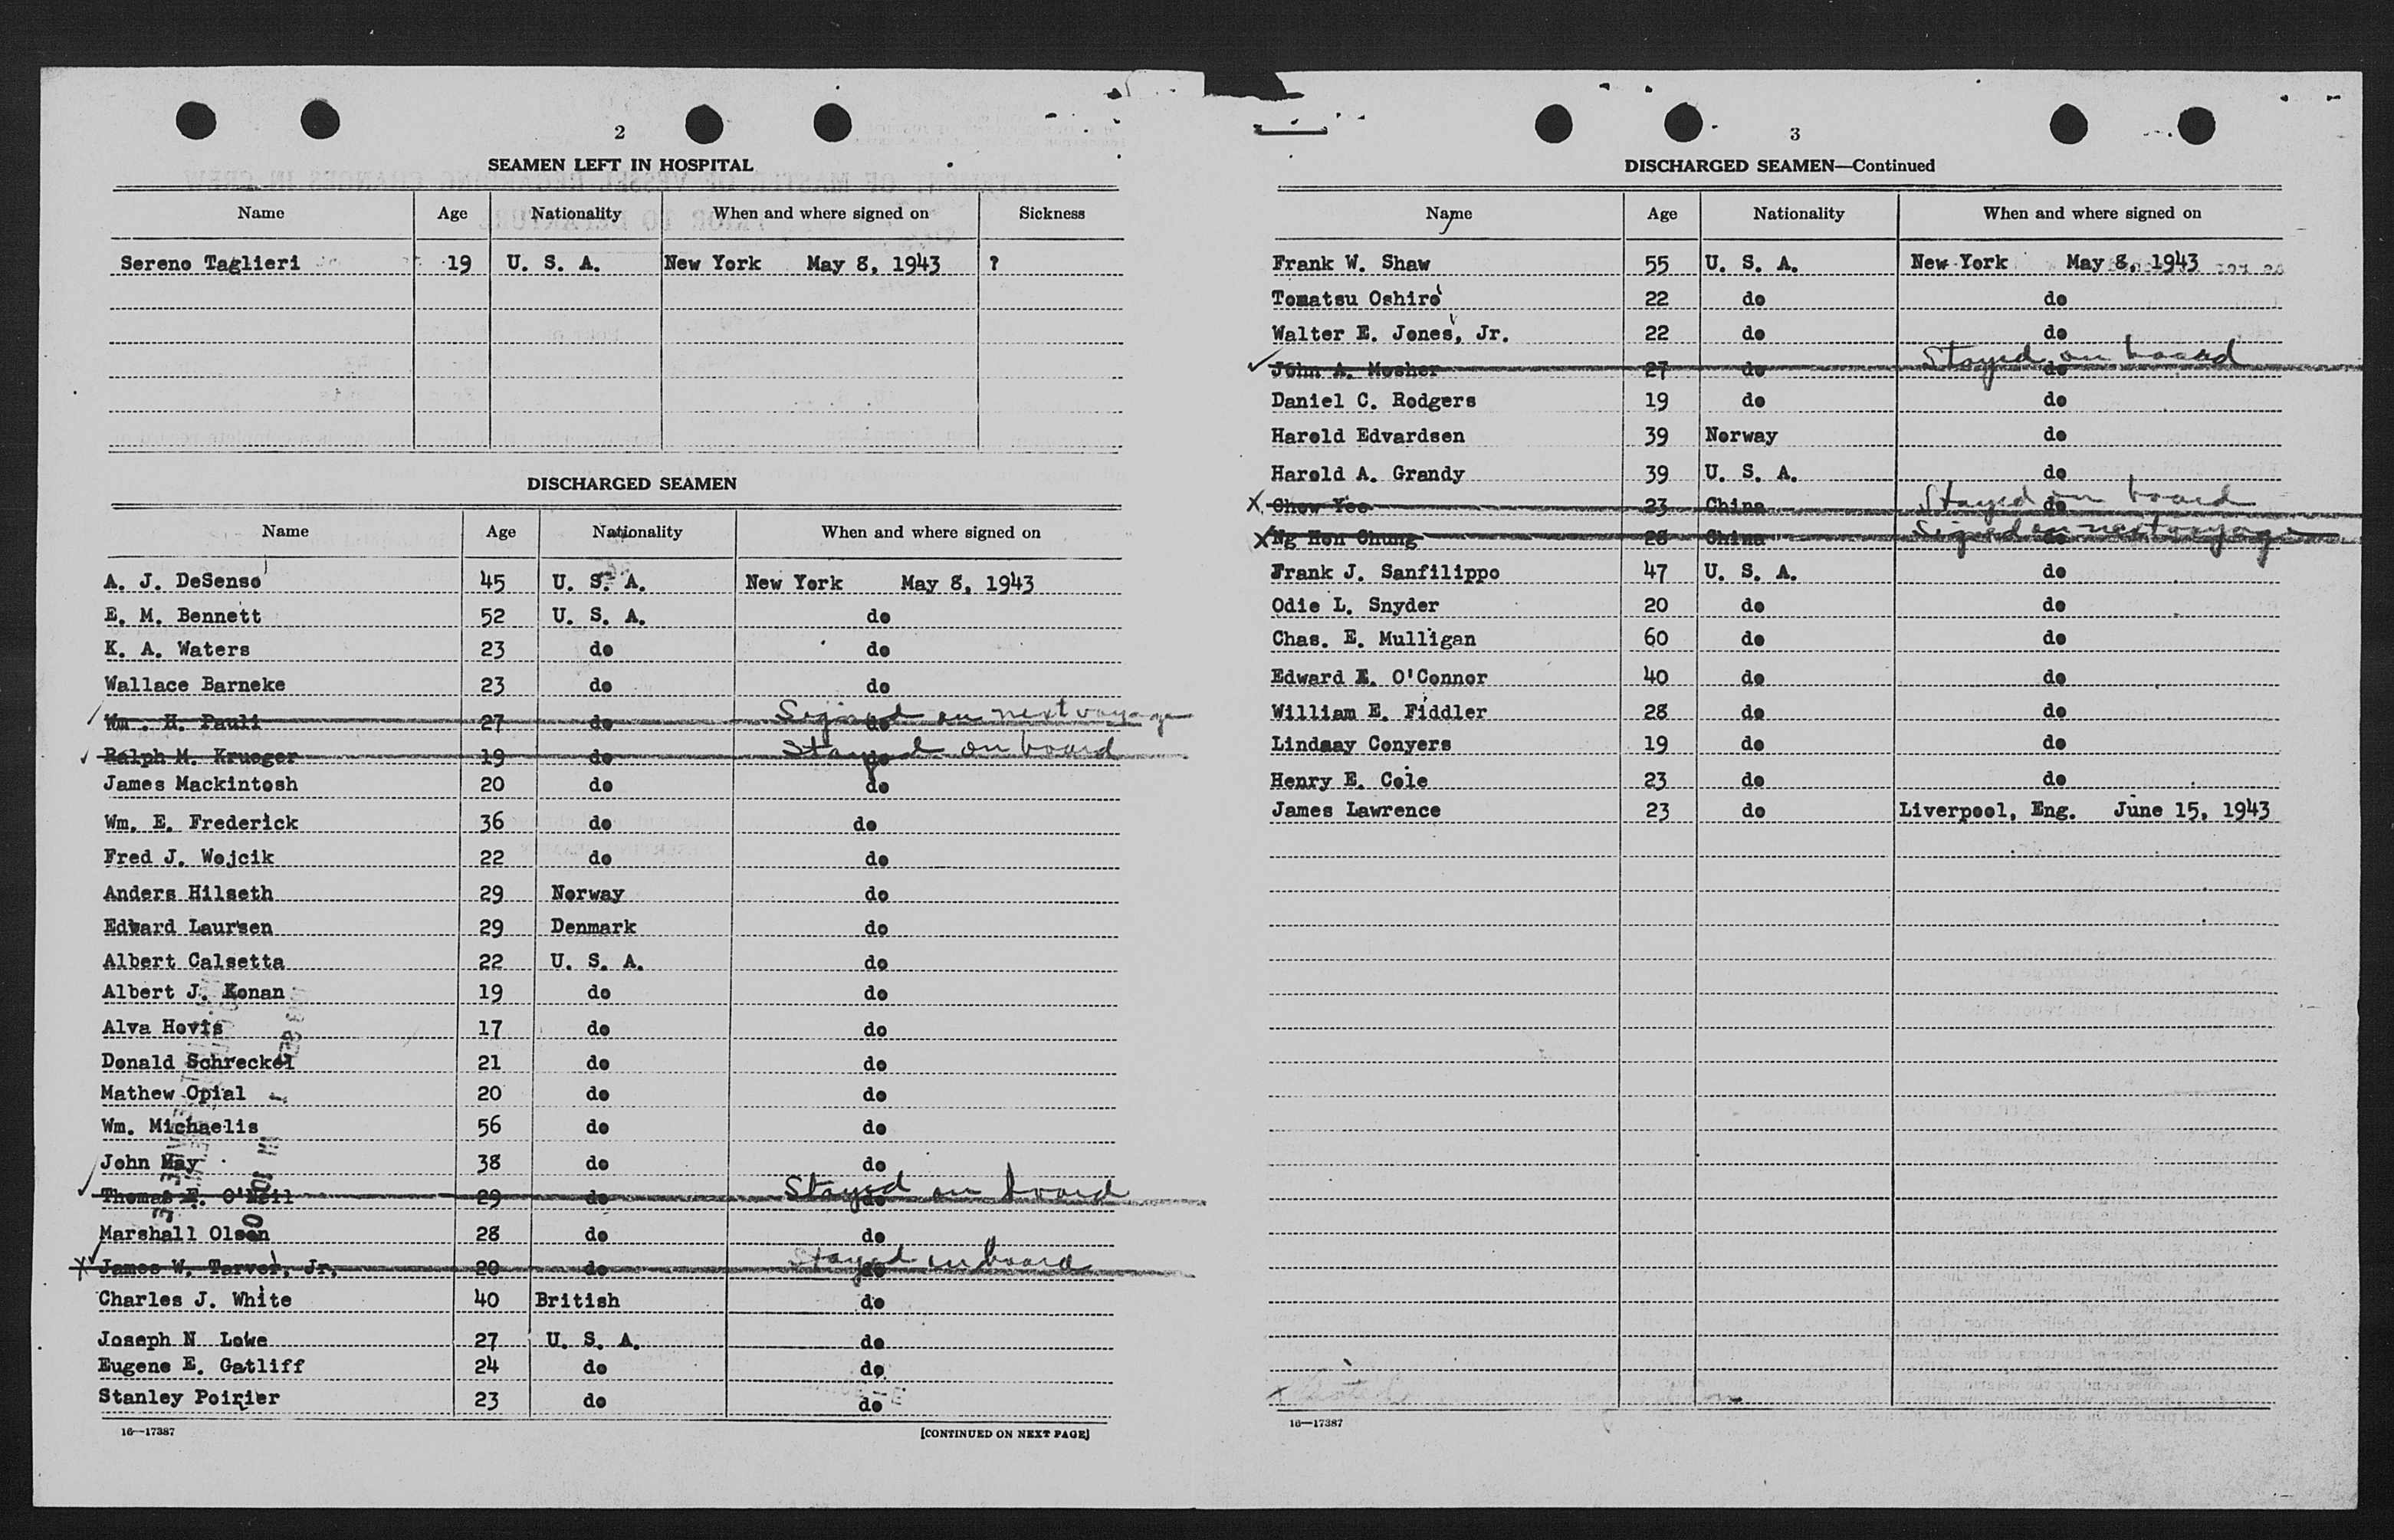 2
SEAMEN LEFT IN HOSPITAL
Name Age Nationality When and where signed on Sickness
Sereno Taglieri 19 U. S. A. New York May 8, 1943 ?
DISCHARGED SEAMEN
Name Age Nationality When and where signed on
A. J. DeSenso 45 U. S. A. New York May 8, 1943
E. M. Bennett 52 U. S. A. do
K. A. Waters 23 do do
Wallace Barneke 23 do do
Wm. H. Pauli 27 do do Signed on next voyage
Ralph M. Krueger 19 do do Stayed on board
James Mackintosh 20 do do
Wm. E. Frederick 36 do do
Fred J. Wojcik 22 do do
Anders Hilseth 29 Norway do
Edward Laursen 29 Denmark do
Albert Calsetta 22 U. S. A. do
Albert J. Konan 19 do do
Alva Hovis 17 do do
Donald Schreckel 21 do do
Mathew Opial 20 do do
Wm. Michaelis 56 do do
John May 38 do do
Thomas F. O'Neil 29 do do Stayed on board
Marshall Olsen 28 do do
James W. Tarver, Jr. 20 do do Stayed on board
Charles J. White 40 British do
Joseph N Lowe 27 U. S. A. do
Eugene E. Gatliff 24 do do
Stanley Poirier 23 do do
16—17387 [CONTINUED ON NEXT PAGE]
3
DISCHARGED SEAMEN—Continued
Name Age Nationality When and where signed on
Frank W. Shaw 55 U. S. A. New York May 8, 1943
Tomatsu Oshiro 22 do do
Walter E. Jones, Jr. 22 do do
John A. Mosher 27 do do Stayed on board
Daniel C. Rodgers 19 do do
Harold Edvardsen 39 Norway do
Harold A. Grandy 39 U. S. A. do
Chow Yee 23 China do Stayed on board
Ng Hon Chung 28 China do Signed on next voyage
Frank J. Sanfilippo 47 U. S. A. do
Odie L. Snyder 20 do do
Chas. E. Mulligan 60 do do
Edward E. O'Connor 40 do do
William E. Fiddler 28 do do
Lindsay Conyers 19 do do
Henry E. Cole 23 do do
James Lawrence 23 do Liverpool, Eng. June 15, 1943
16—17387